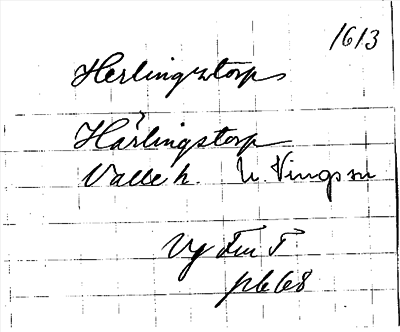 1613
Herlingztorp
Härlingstorp
Valle h. N. Vingsn
Vg Fur T